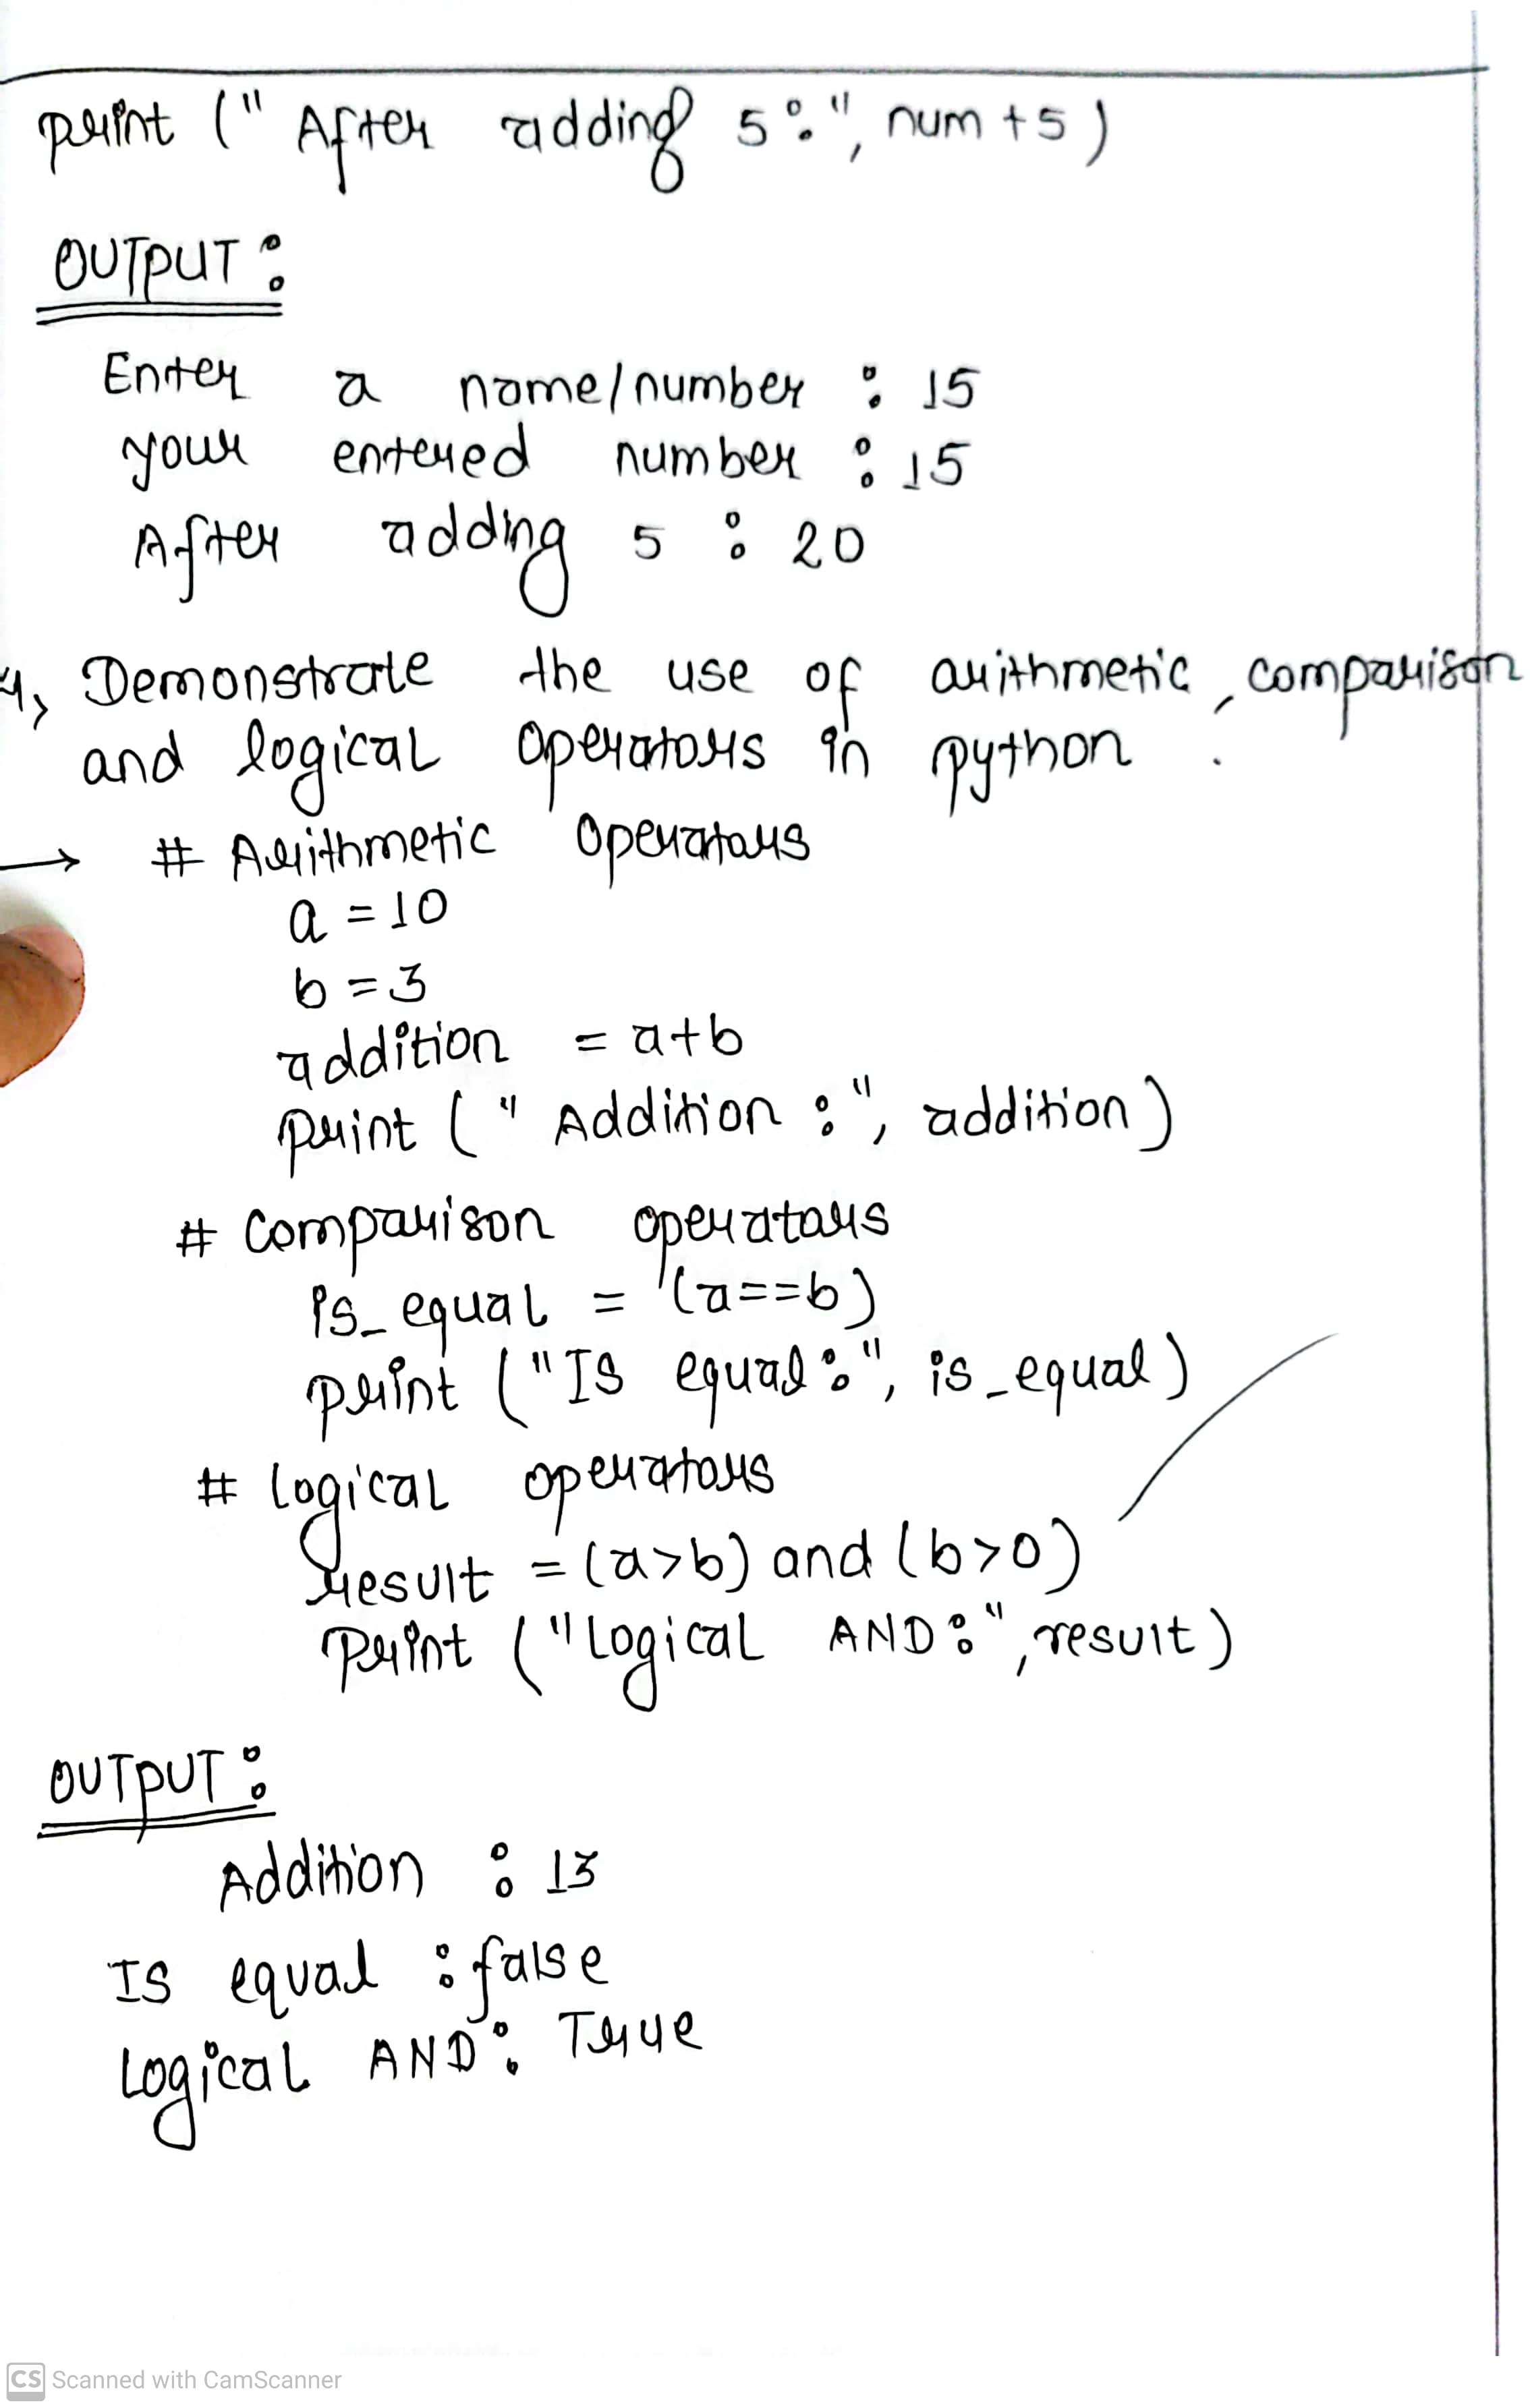 print (" After adding 5:", num +5)
OUTPUT :
Enter a name/number : 15
your entered number : 15
After adding 5 : 20
4, Demonstrate the use of arithmetic, comparison
and logical operators in python .
→ # Arithmetic operators
a = 10
b = 3
addition = a+b
print (" Addition :", addition)
# Comparison operators
is_equal = (a==b)
print ("Is equal:", is_equal)
# logical operators
result = (a>b) and (b>0)
print ("logical AND:", result)
OUTPUT :
Addition : 13
Is equal : false
logical AND : True
CS Scanned with CamScanner